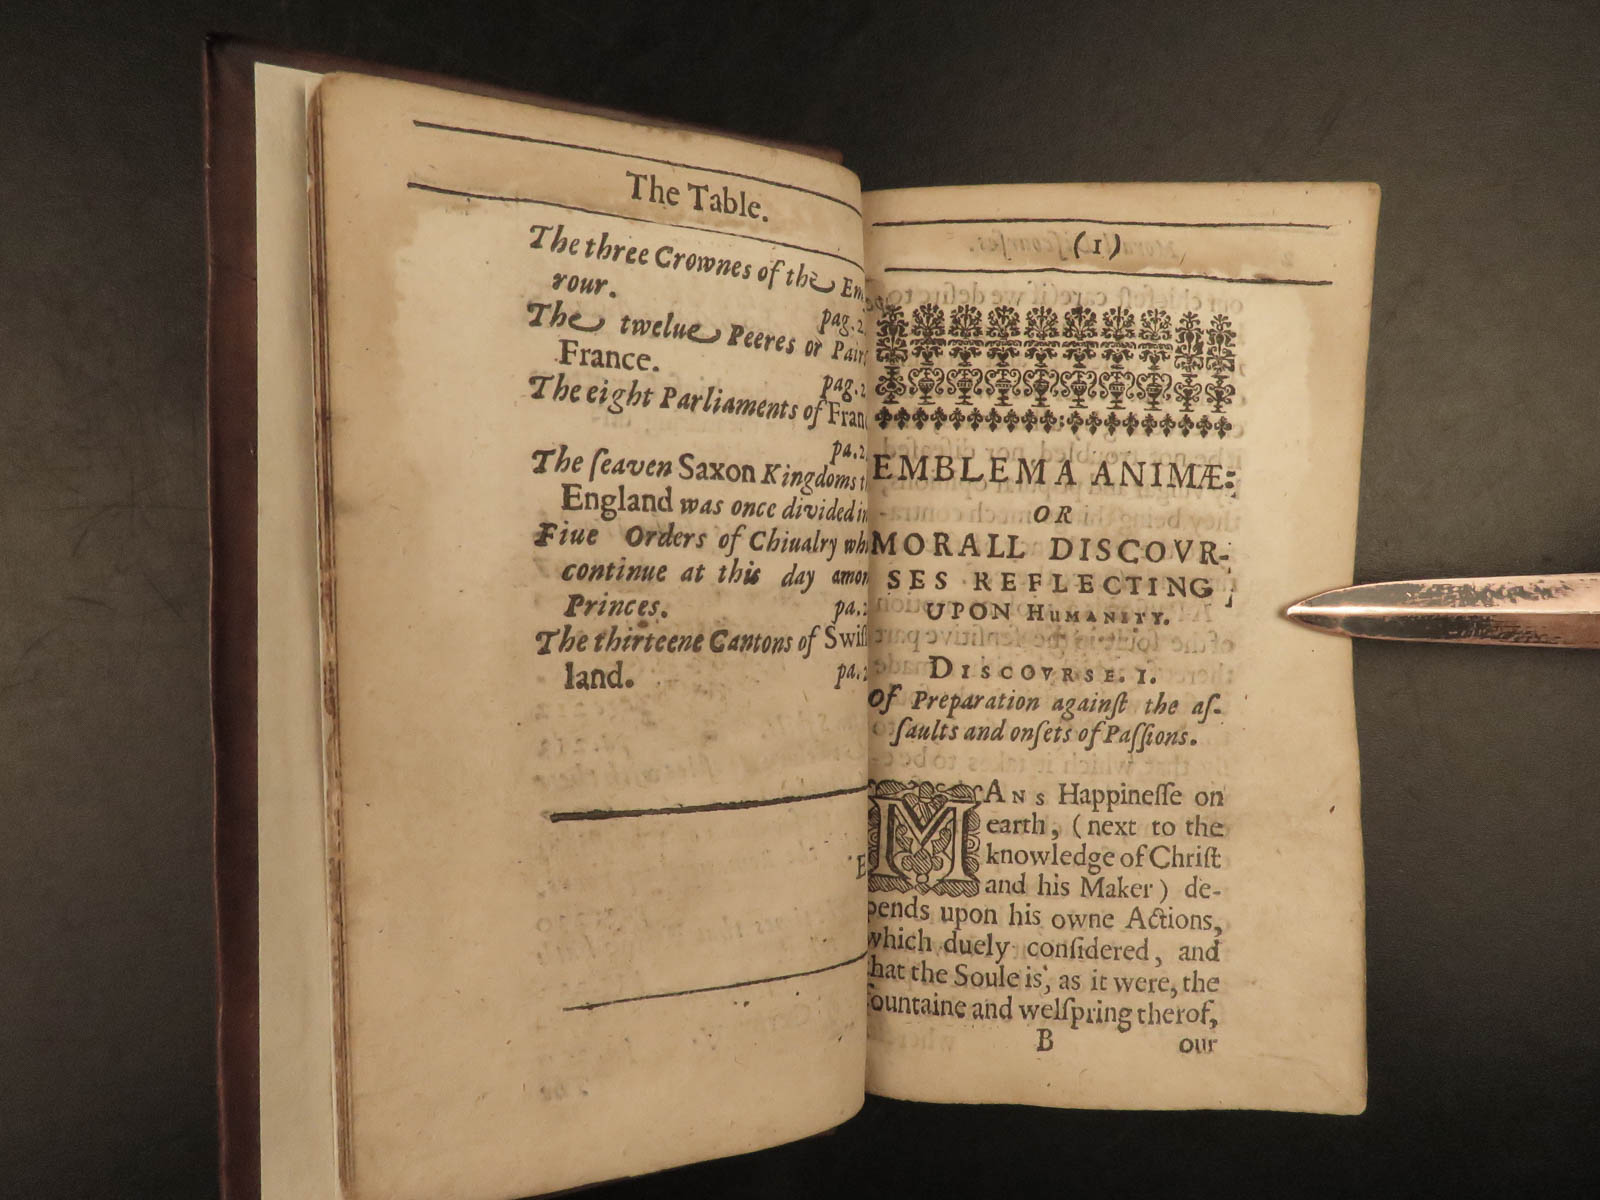 The Table.
The three Crownes of the Em
rour.
pag.2
The twelue Peeres or Pair
France.
pag.2
The eight Parliaments of Fran
pa.2
The ſeaven Saxon Kingdoms
England was once divided in
Fiue Orders of Chiualry whi
continue at this day amon
Princes.
pa.2
The thirteene Cantons of Swiſ
land.
pa.2
E
(1)
EMBLEMA ANIMÆ:
OR
MORALL DISCOVR-
SES REFLECTING
UPON HUMANITY.
DISCOVRSE. I.
Of Preparation againſt the aſ-
ſaults and onſets of Paſſions.
MANS Happineſſe on
earth, (next to the
knowledge of Chriſt
and his Maker) de-
pends upon his owne Actions,
which duely conſidered, and
that the Soule is, as it were, the
fountaine and welſpring therof,
B our